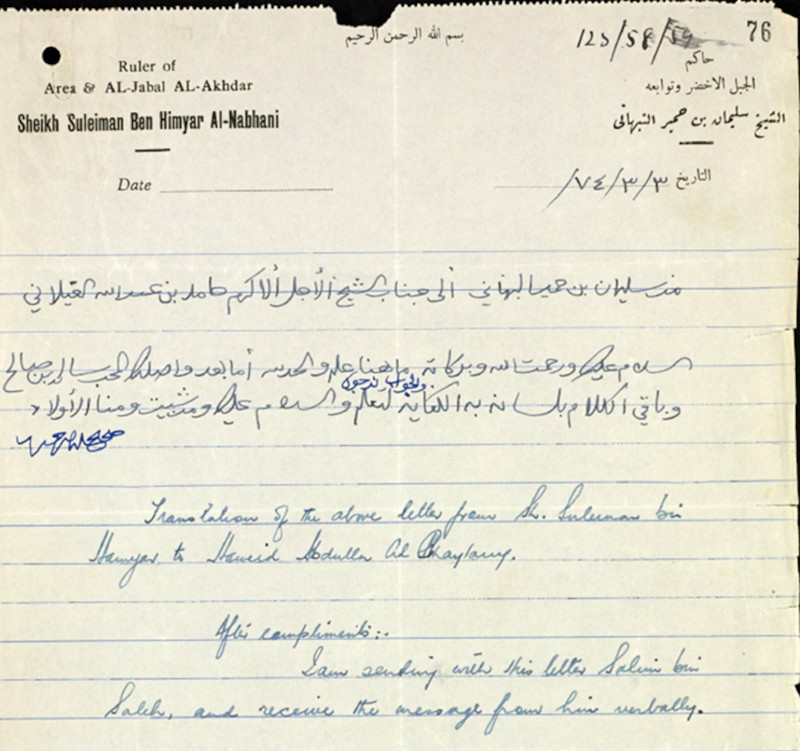 بسم الله الرحمن الرحيم
123/58/59
76
Ruler of
Area & AL-Jabal AL-Akhdar
Sheikh Suleiman Ben Himyar Al-Nabhani
Date
حاكم
الجبل الاخضر وتوابعه
الشيخ سليمان بن حمير النبهاني
التاريخ ٧٤/٣/٣/
من سليمان بن حمير النبهاني ألى جناب الشيخ الأجل ألاكرم حامد بن عبدالله الغيلاني
السلام عليكم ورحمت الله وبركاته ما هنا علم والحمدلله أما بعد واصلك المحب سالم بن صالح
والجواب نرجوه
وباقي الكلام بلسانه به الكفاية لتعلم والسلام عليك ومن شيت ومنا الأولاد
Translation of the above letter from Sh. Suleiman bin
Hamyar to Hamid Abdulla Al Ghaylany.
After compliments:-
I am sending with this letter Salim bin
Saleh, and receive the message from him verbally.